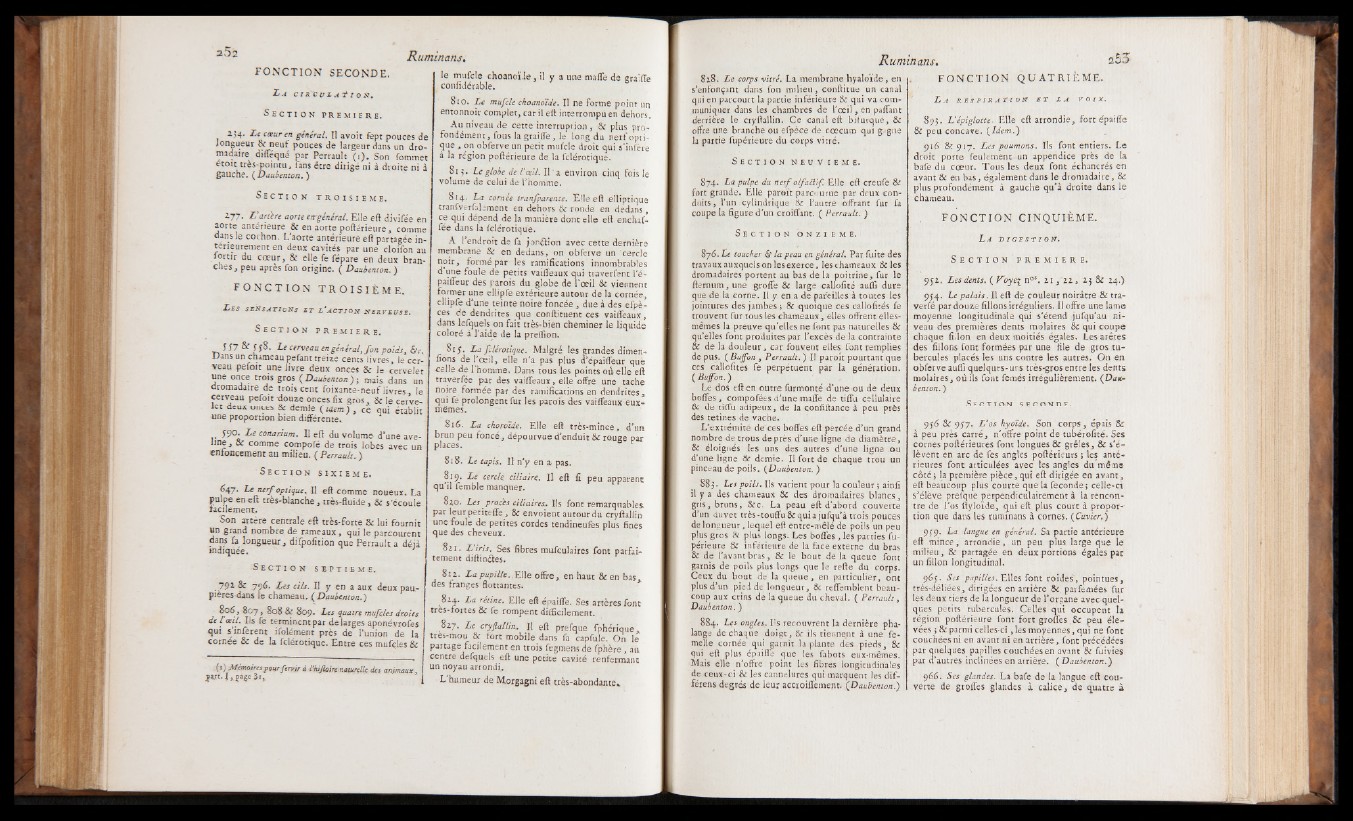 252
Ruminans.
FONCTION SECONDE.
LA CIRCULATION.
SECTION PREMIERE.
234. Le cœur en général. Il avoit ſept pouces de
longueur & neuf pouces de largeur dans un dro-
madaire diſſéqué par Perrault (1). Son ſommet
étoit très-pointu, ſans être dirigé ni à droite ni à
gauche. (Daubenton.)
SECTION TROISIEME.
277. L'artère aorte en général. Elle eſt diviſée en
aorte antérieure & en aorte poſtérieure, comme
dans le cochon. L'aorte antérieure eſt partagée in-
térieurement en deux cavités par une cloiſon au
ſortir du cœur, & elle ſe ſépare en deux bran-
ches, peu après ſon origine. (Daubenton.)
FONCTION TROISIÈME.
LES SENSATIONS ET L'ACTION NERVEUSE.
SECTION PREMIERE.
557 & 558. Le cerveau en général, ſon poids, &c.
Dans un chameau peſant treize cents livres, le cer-
veau peſoit une livre deux onces & le cervelet
une once trois gros (Daubenton); mais dans un
dromadaire de trois cent ſoixante-neuf livres, le
cerveau peſoit douze onces ſix gros, & le cerve-
let deux onces & demie (idem), ce qui établit
une proportion bien différente.
590. Le conarium. Il eſt du volume d'une ave-
line, & comme compoſé de trois lobes avec un
enfoncement au milieu. (Perrault.)
SECTION SIXIEME.
647. Le nerf optique. Il eſt comme noueux. La
pulpe en eſt très-blanche, très-fluide, & s'écoule
facilement.
Son artère centrale eſt très-forte & lui fournit
un grand nombre de rameaux, qui le parcourent
dans ſa longueur, diſpoſition que Perrault a déjà
indiquée.
SECTION SEPTIEME.
792 & 796. Les cils. Il y en a aux deux pau-
pières dans le chameau. (Daubenton.)
806, 807, 808 & 809. Les quatre muſcles droits
de l'œil. Ils ſe terminent par de larges aponévroſes
qui s'inſèrent iſolément près de l'union de la
cornée & de la ſclérotique. Entre ces muſcles &
(1) Mémoires pour ſervir à l'hiſtoire naturelle des animaux,
part. I, page 81.
le muſcle choanoïde, il y a une maſſe de graiſſe
conſidérable.
810. Le muſcle choanoïde. Il ne forme point un
entonnoir complet, car il eſt interrompu en dehors.
Au niveau de cette interruption, & plus pro-
fondément, ſous la graiſſe, le long du nerf opti-
que, on obſerve un petit muſcle droit qui s'inſère
à la région poſtérieure de la ſclérotique.
813. Le globe de l'œil. Il a environ cinq fois le
volume de celui de l'homme.
814. La cornée tranſparente. Elle eſt elliptique
tranſverſalement en dehors & ronde en dedans,
ce qui dépend de la manière dont elle eſt enchâſ-
ſée dans la ſclérotique.
A l'endroit de ſa jonction avec cette dernière
membrane & en dedans, on obſerve un cercle
noir, formé par les ramifications innombrables
d'une foule de petits vaiſſeaux qui traverſent l'é-
paiſſeur des parois du globe de l'œil & viennent
former une ellipſe extérieure autour de la cornée,
ellipſe d'une teinte noire foncée, due à des eſpè-
ces de dendrites que conſtituent ces vaiſſeaux,
dans leſquels on fait très-bien cheminer le liquide
coloré à l'aide de la preſſion.
815. La ſclérotique. Malgré les grandes dimen-
ſions de l'œil, elle n'a pas plus d'épaiſſeur que
celle de l'homme. Dans tous les points où elle eſt
traverſée par des vaiſſeaux, elle offre une tache
noire formée par des ramifications en dendrites,
qui ſe prolongent ſur les parois des vaiſſeaux eux-
mêmes.
816. La choroïde. Elle eſt très-mince, d'un
brun peu foncé, dépourvue d'enduit & rouge par
places.
818. Le tapis. Il n'y en a pas.
819. Le cercle ciliaire. Il eſt ſi peu apparent
qu'il ſemble manquer.
820. Les procès ciliaires. Ils ſont remarquables
par leur petiteſſe, & envoient autour du cryſtallin
une foule de petites cordes tendineuſes plus fines
que des cheveux.
821. L'iris. Ses fibres muſculaires ſont parfai-
tement diſtinctes.
812. La pupille. Elle offre, en haut & en bas,
des franges flottantes.
824. La rétine. Elle eſt épaiſſe. Ses artères ſont
très-fortes & ſe rompent difficilement.
827. Le cryſtallin. Il eſt preſque ſphérique,
très-mou & fort mobile dans ſa capſule. On le
partage facilement en trois ſegmens de ſphère, au
centre deſquels eſt une petite cavité renfermant
un noyau arrondi.
L'humeur de Morgagni eſt très-abondante.
Ruminans.
253
828. Le corps vitré. La membrane hyaloïde, en
s'enfonçant dans ſon milieu, conſtitue un canal
qui en parcourt la partie inférieure & qui va com-
muniquer dans les chambres de l'œil, en paſſant
derrière le cryſtallin. Ce canal eſt bifurqué, &
offre une branche ou eſpèce de cœcum qui gagne
la partie ſupérieure du corps vitré.
SECTION NEUVIEME.
874. La pulpe du nerf olfactif. Elle eſt creuſe &
fort grande. Elle paroît parcourue par deux con-
duits, l'un cylindrique & l'autre offrant ſur ſa
coupe la figure d'un croiſſant. (Perrault.)
SECTION ONZIEME.
876. Le toucher & la peau en général. Par ſuite des
travaux auxquels on les exerce, les chameaux & les
dromadaires portent au bas de la poitrine, ſur le
ſternum, une groſſe & large calloſité auſſi dure
que de la corne. Il y en a de pareilles à toutes les
jointures des jambes; & quoique ces calloſités ſe
trouvent ſur tous les chameaux, elles offrent elles-
mêmes la preuve qu'elles ne ſont pas naturelles &
qu'elles ſont produites par l'excès de la contrainte
& de la douleur, car ſouvent elles ſont remplies
de pus. (Buffon, Perrault.) Il paroît pourtant que
ces calloſités ſe perpétuent par la génération.
(Buffon.)
Le dos eſt en outre ſurmonté d'une ou de deux
boſſes, compoſées d'une maſſe de tiſſu cellulaire
& de tiſſu adipeux, de la conſiſtance à peu près
des tetines de vache.
L'extrémité de ces boſſes eſt percée d'un grand
nombre de trous de près d'une ligne de diamètre,
& éloignés les uns des autres d'une ligne ou
d'une ligne & demie. Il ſort de chaque trou un
pinceau de poils. (Daubenton.)
883. Les poils. Ils varient pour la couleur; ainſi
il y a des chameaux & des dromadaires blancs,
gris, bruns, &c. La peau eſt d'abord couverte
d'un duvet très-touffu & qui a juſqu'à trois pouces
de longueur, lequel eſt entre-mêlé de poils un peu
plus gros & plus longs. Les boſſes, les parties ſu-
périeure & inférieure de la face externe du bras
& de l'avant bras, & le bout de la queue ſont
garnis de poils plus longs que le reſte du corps.
Ceux du bout de la queue, en particulier, ont
plus d'un pied de longueur, & reſſemblent beau-
coup aux crins de la queue du cheval. (Perrault,
Daubenton.)
884. Les ongles. Ils recouvrent la dernière pha-
lange de chaque doigt, & ils tiennent à une ſe-
melle cornée qui garnit la plante des pieds, &
qui eſt plus épaiſſe que les ſabots eux-mêmes.
Mais elle n'offre point les fibres longitudinales
de ceux-ci & les cannelures qui marquent les dif-
férens degrés de leur accroiſſement. (Daubenton.)
FONCTION QUATRIÈME.
LA RESPIRATION ET LA VOIX.
895. L'épiglotte. Elle eſt arrondie, fort épaiſſe
& peu concave. (Idem.)
916 & 917. Les poumons. Ils ſont entiers. Le
droit porte ſeulement un appendice près de la
baſe du cœur. Tous les deux ſont échancrés en
avant & en bas, également dans le dromadaire, &
plus profondément à gauche qu'à droite dans le
chameau.
FONCTION CINQUIÈME.
LA DIGESTION.
SECTION PREMIERE.
952. Les dents. (Voyez nos. 21, 22, 23 & 24.)
954. Le palais. Il eſt de couleur noirâtre & tra-
verſé par douze ſillons irréguliers. Il offre une lame
moyenne longitudinale qui s'étend juſqu'au ni-
veau des premières dents molaires & qui coupe
chaque ſillon en deux moitiés égales. Les arêtes
des ſillons ſont formées par une file de gros tu-
bercules placés les uns contre les autres. On en
obſerve auſſi quelques-uns très-gros entre les dents
molaires, où ils ſont ſemés irrégulièrement. (Dau-
benton.)
SECTION SECONDE.
956 & 957. L'os hyoïde. Son corps, épais &
à peu près carré, n'offre point de tubéroſité. Ses
cornes poſtérieures ſont longues & grêles, & s'é-
lèvent en arc de ſes angles poſtérieurs; les anté-
rieures ſont articulées avec les angles du même
côté; la première pièce, qui eſt dirigée en avant,
eſt beaucoup plus courte que la ſeconde; celle-ci
s'élève preſque perpendiculairement à la rencon-
tre de l'os ſtyloïde, qui eſt plus court à propor-
tion que dans les ruminans à cornes. (Cuvier.)
959. La langue en général. Sa partie antérieure
eſt mince, arrondie, un peu plus large que le
milieu, & partagée en deux portions égales par
un ſillon longitudinal.
965. Ses papilles. Elles ſont roides, pointues,
très-déliées, dirigées en arrière & parſemées ſur
les deux tiers de la longueur de l'organe avec quel-
ques petits tubercules. Celles qui occupent la
région poſtérieure ſont fort groſſes & peu éle-
vées; & parmi celles-ci, les moyennes, qui ne ſont
couchées ni en avant ni en arrière, ſont précédées
par quelques papilles couchées en avant & ſuivies
par d'autres inclinées en arrière. (Daubenton.)
966. Ses glandes. La baſe de la langue eſt cou-
verte de groſſes glandes à calice, de quatre à